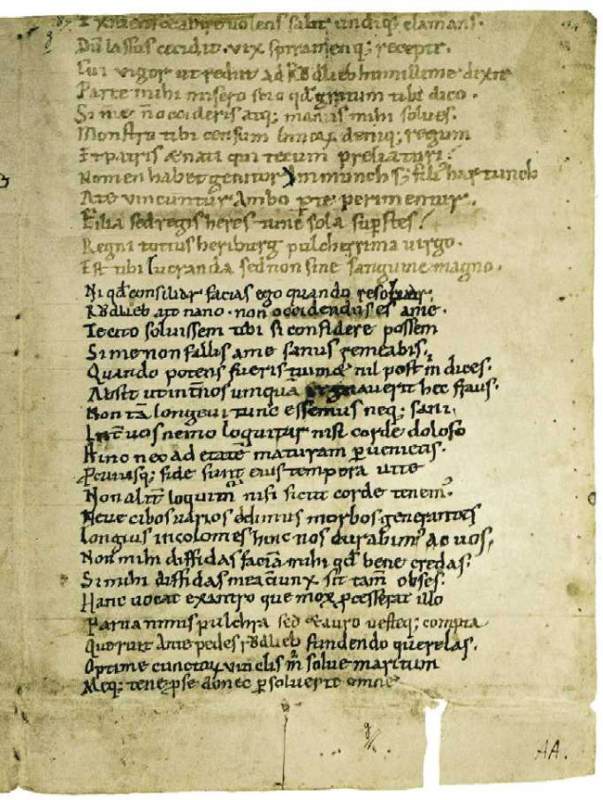 Dū lassus cecidit. vix spiramenq; recepit.
Cui vigor ut rediit ad Rōdlieb humillime dixit
Parce mihi misero scio qđ gratum tibi dico.
Si me ñ occideris atq; manus mihi solves.
Monstro tibi censum binoꝝ deniq; regum
Et patris & nati qui tecum preliaturi.
Nomen habet genitor Immunch s; fili' hartunch
A te vincuntur Ambo pīt perimentur.
Filia sed regis heres tunc sola supstes
Regni totius heriburg pulcherrima virgo.
Est tibi lucranda sed non sine sanguine magno.
Ni qđ consiliar facias ego quando resolvar.
Rōdlieb ait nano. non occidendus es ame
Te cito solvissem tibi si confidere possem
Si me non fallis a me sanus remeabis,
Quando potens fueris nil post m dices.
Absit ut int nos umquā regnaverit hec fraus.
Non tā longevi tunc essemus neq; sani.
Int vos nemo loquitur nisi corde doloso
Hinc nec ad etatē maturam puenietis.
P cuiusq; fide sunt eius tempora vite
Non alit loquim' nisi sicut corde tenem'.
Neve cibos varios edimus morbos generantes
Longius incolomes hinc nos durabim' ac vos,
Non mihi diffidas faciā mihi qđ bene credas.
Si mihi diffidas mea ciunx sit tam obses.
Hanc vocat ex antro que mox pcesserat illo
Parva nimis pulchra sed & auro vesteq; compta
Que ruit Ante pedes rōdlieb fundendo querelas.
Optime cunctoꝝ vinclis m solve maritum
Meq; tene p se donec psolverit omne
AA.